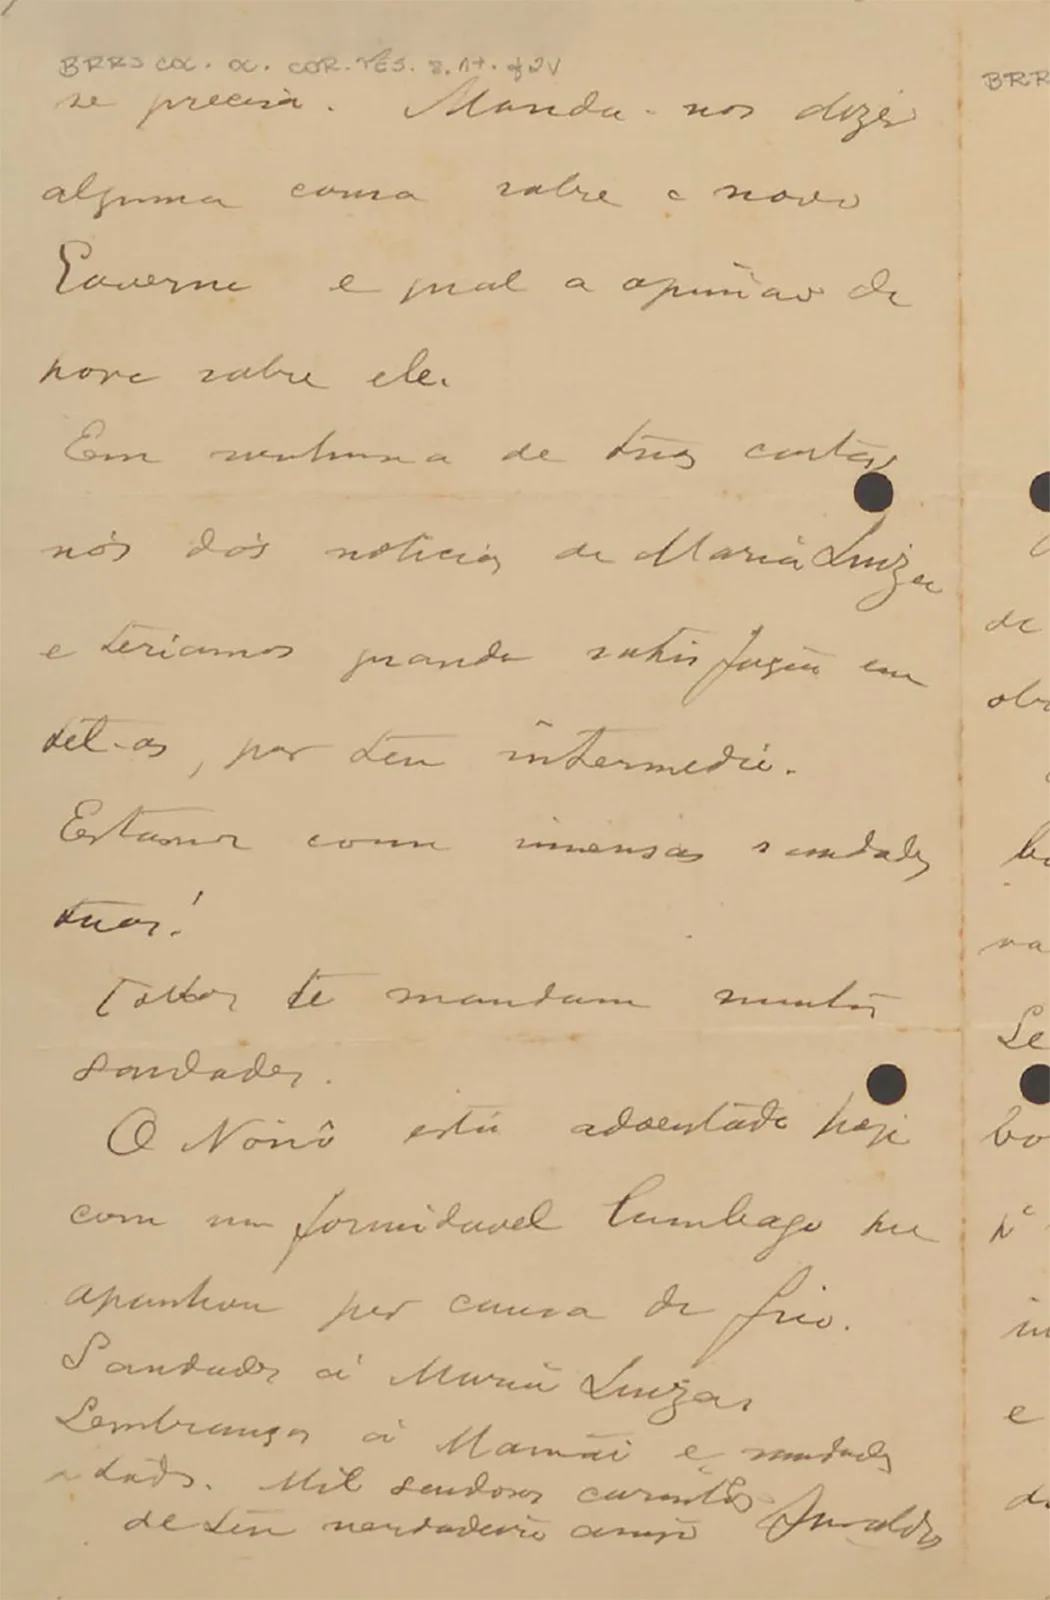 BRRS COC. OC. COR. PES. 2. 17. f2V
se precisa. Manda-nos dizer
alguma cousa sobre o novo
Governo e qual a opinião do
povo sobre ele.
Em nenhuma de tuas cartas
nós dás noticias de Maria Luiza
e teriamos grande satisfação em
tel-as, por teu intermedio.
Estamos com imensas saudades
tuas!
Todos te mandam muitas
saudades.
O Nonô está adoentado hoje
com um formidavel lumbago que
apanhou por causa do frio.
Saudades á Maria Luiza
Lembranças á Mamãi e saudades
a todos. Mil saudosos carinhos
de teu verdadeiro amigo
BRR
de
obr
va
Se
bo
e